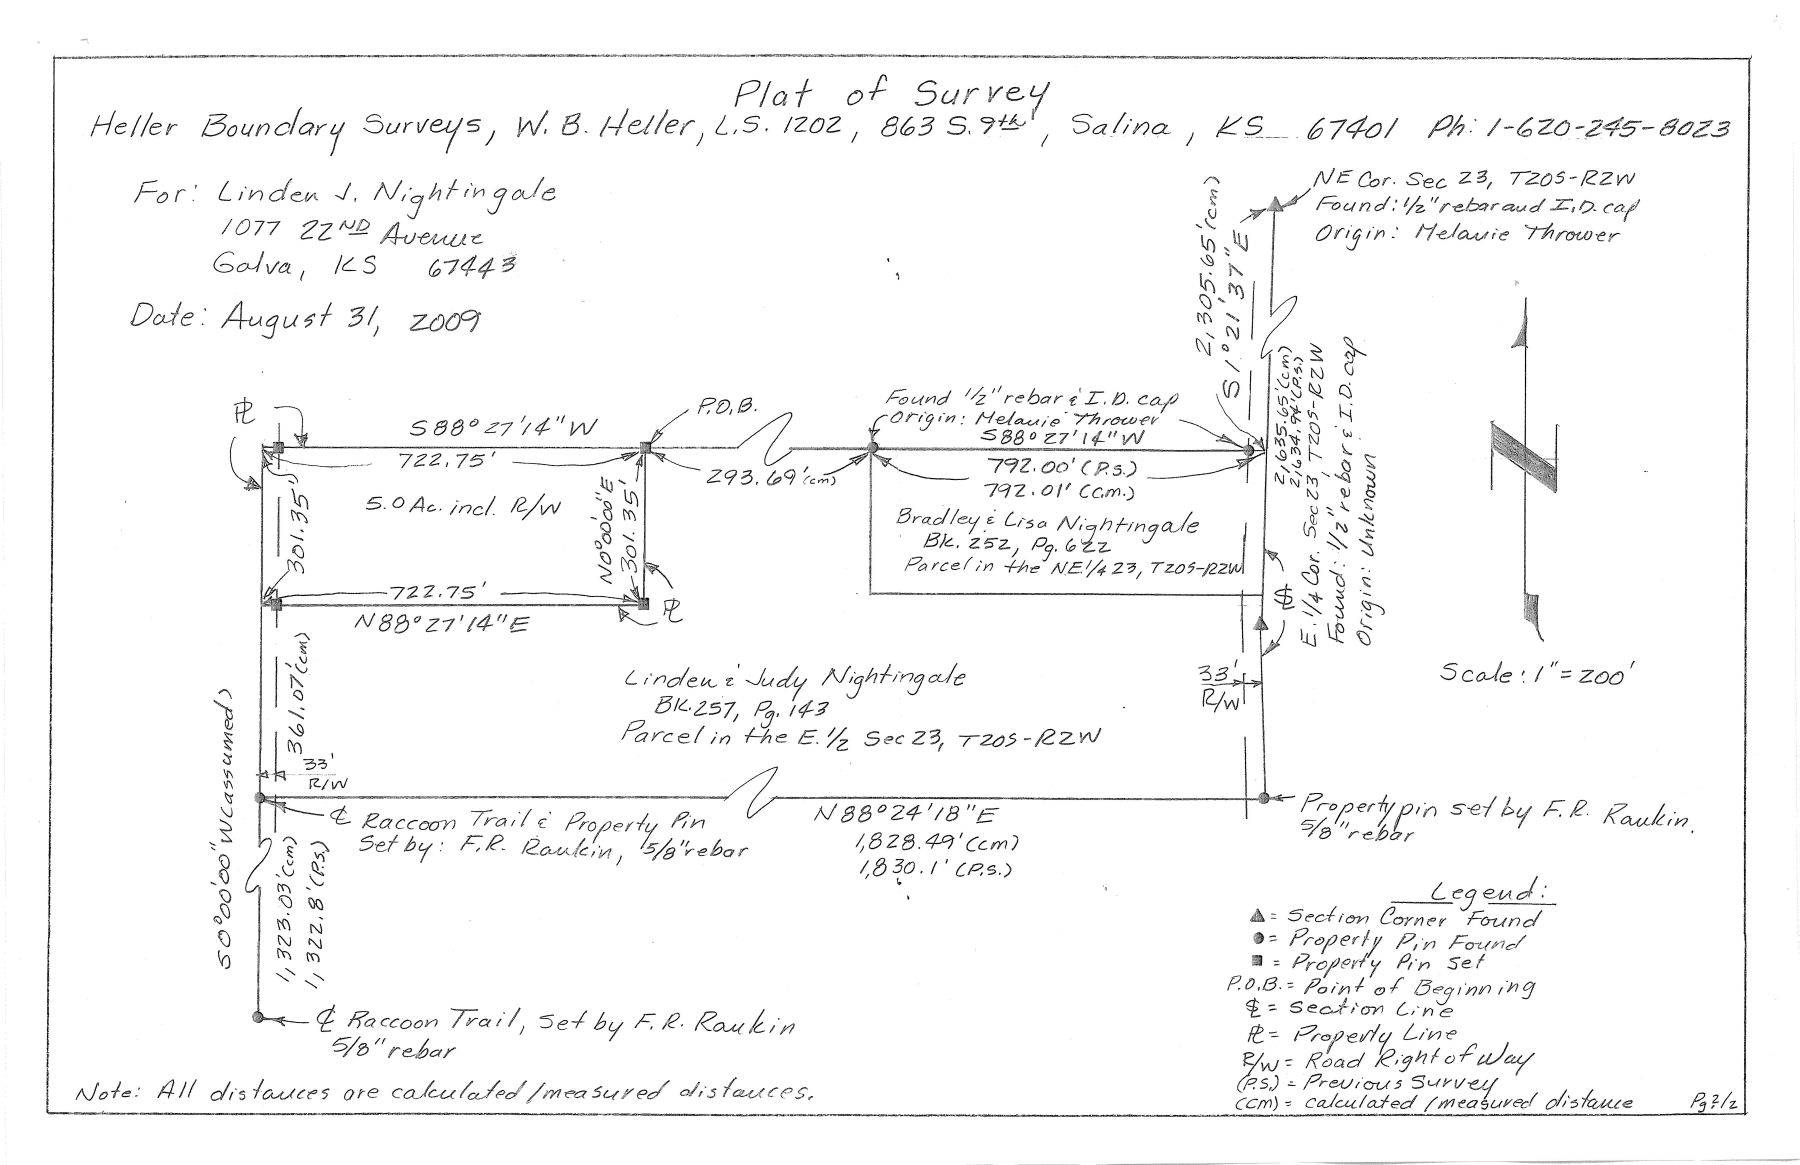 Plat of Survey
Heller Boundary Surveys, W. B. Heller, L.S. 1202, 863 S. 9th, Salina, KS 67401 Ph: 1-620-245-8023
For: Linden J. Nightingale
1077 22ND Avenue
Galva, KS 67443
Date: August 31, 2009
NE Cor. Sec 23, T20S-R2W
Found: 1/2" rebar and I.D. cap
Origin: Melanie Thrower
2,305.65' (cm)
S 1° 21' 37" E
2,635.65' (cm)
2,634.94' (P.S.)
E. 1/4 Cor. Sec 23, T20S-R2W
Found: 1/2" rebar & I.D. cap
Origin: Unknown
PL
S88° 27' 14" W
722.75'
P.O.B.
293.69' (cm)
Found 1/2" rebar & I.D. cap
Origin: Melanie Thrower
S88° 27' 14" W
792.00' (P.S.)
792.01' (C.m.)
301.35'
5.0 Ac. incl. R/W
N0°00'00"E
301.35'
Bradley & Lisa Nightingale
Bk. 252, Pg. 622
Parcel in the NE. 1/4 23, T20S-R2W
722.75'
N88° 27' 14" E
PL
Scale: 1" = 200'
361.07' (cm)
Linden & Judy Nightingale
Bk. 257, Pg. 143
Parcel in the E. 1/2 Sec 23, T20S-R2W
33'
R/W
33'
R/W
S0°00'00"W (assumed)
℄ Raccoon Trail & Property Pin
Set by: F.R. Raukin, 5/8" rebar
N88° 24' 18" E
1,828.49' (cm)
1,830.1' (P.S.)
Property pin set by F.R. Raukin.
5/8" rebar
1,323.03' (cm)
1,322.8' (P.S.)
℄ Raccoon Trail, Set by F.R. Raukin
5/8" rebar
Legend:
▲ = Section Corner Found
● = Property Pin Found
■ = Property Pin Set
P.O.B. = Point of Beginning
SL = Section Line
PL = Property Line
R/W = Road Right of Way
(P.S.) = Previous Survey
(cm) = calculated / measured distance
Note: All distances are calculated / measured distances.
Pg 2/2